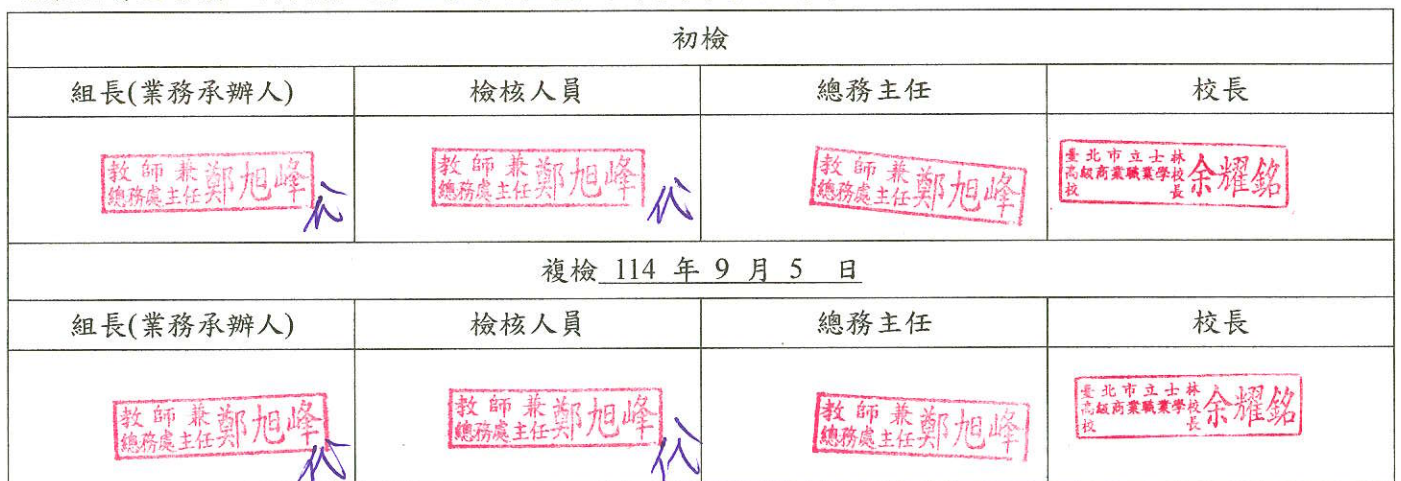 初檢
組長(業務承辦人) 檢核人員 總務主任 校長
教師兼 總務處主任 鄭旭峰 代
教師兼 總務處主任 鄭旭峰 代
教師兼 總務處主任 鄭旭峰
臺北市立士林高級商業職業學校校長 余耀銘
複檢 114 年 9 月 5 日
組長(業務承辦人) 檢核人員 總務主任 校長
教師兼 總務處主任 鄭旭峰 代
教師兼 總務處主任 鄭旭峰 代
教師兼 總務處主任 鄭旭峰
臺北市立士林高級商業職業學校校長 余耀銘